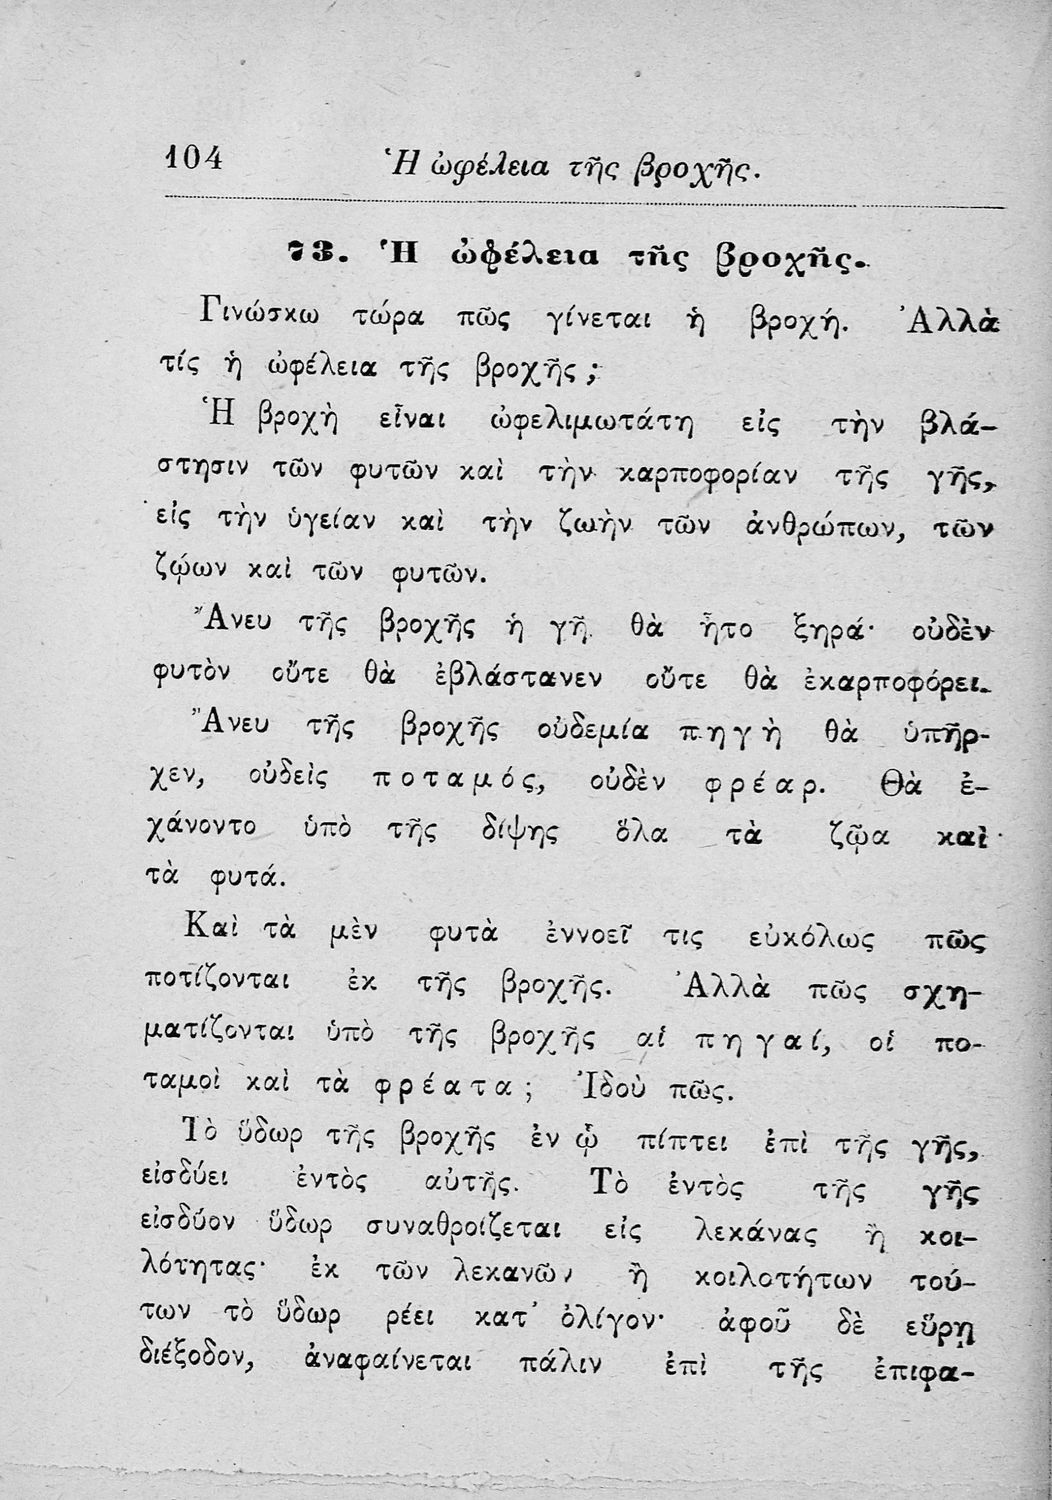 104
Ἡ ὠφέλεια τῆς βροχῆς.
73. Ἡ ὠφέλεια τῆς βροχῆς.
Γινώσκω τώρα πῶς γίνεται ἡ βροχή. Ἀλλὰ
τίς ἡ ὠφέλεια τῆς βροχῆς;
Ἡ βροχὴ εἶναι ὠφελιμωτάτη εἰς τὴν βλά-
στησιν τῶν φυτῶν καὶ τὴν καρποφορίαν τῆς γῆς,
εἰς τὴν ὑγείαν καὶ τὴν ζωὴν τῶν ἀνθρώπων, τῶν
ζῴων καὶ τῶν φυτῶν.
Ἄνευ τῆς βροχῆς ἡ γῆ θὰ ἦτο ξηρά· οὐδὲν
φυτὸν οὔτε θὰ ἐβλάστανεν οὔτε θὰ ἐκαρποφόρει.
Ἄνευ τῆς βροχῆς οὐδεμία πηγὴ θὰ ὑπῆρ-
χεν, οὐδεὶς ποταμός, οὐδὲν φρέαρ. Θὰ ἐ-
χάνοντο ὑπὸ τῆς δίψης ὅλα τὰ ζῷα καὶ
τὰ φυτά.
Καὶ τὰ μὲν φυτὰ ἐννοεῖ τις εὐκόλως πῶς
ποτίζονται ἐκ τῆς βροχῆς. Ἀλλὰ πῶς σχη-
ματίζονται ὑπὸ τῆς βροχῆς αἱ πηγαί, οἱ πο-
ταμοὶ καὶ τὰ φρέατα; Ἰδοὺ πῶς.
Τὸ ὕδωρ τῆς βροχῆς ἐν ᾧ πίπτει ἐπὶ τῆς γῆς,
εἰσδύει ἐντὸς αὐτῆς. Τὸ ἐντὸς τῆς γῆς
εἰσδῦον ὕδωρ συναθροίζεται εἰς λεκάνας ἢ κοι-
λότητας· ἐκ τῶν λεκανῶν ἢ κοιλοτήτων τού-
των τὸ ὕδωρ ρέει κατ' ὀλίγον· ἀφοῦ δὲ εὕρῃ
διέξοδον, ἀναφαίνεται πάλιν ἐπὶ τῆς ἐπιφα-